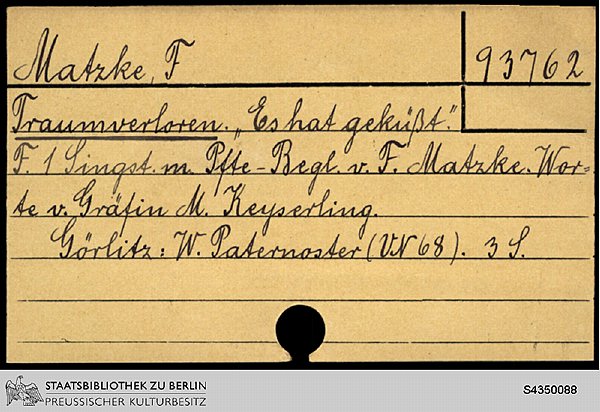 Matzke, F
93762
Traumverloren. „Es hat geküßt."
F. 1 Singst. m. Pfte-Begl. v. F. Matzke. Wor-
te v. Gräfin M. Keyserling.
Görlitz: W. Paternoster (VN 68). 3 S.
STAATSBIBLIOTHEK ZU BERLIN
PREUSSISCHER KULTURBESITZ
S4350088